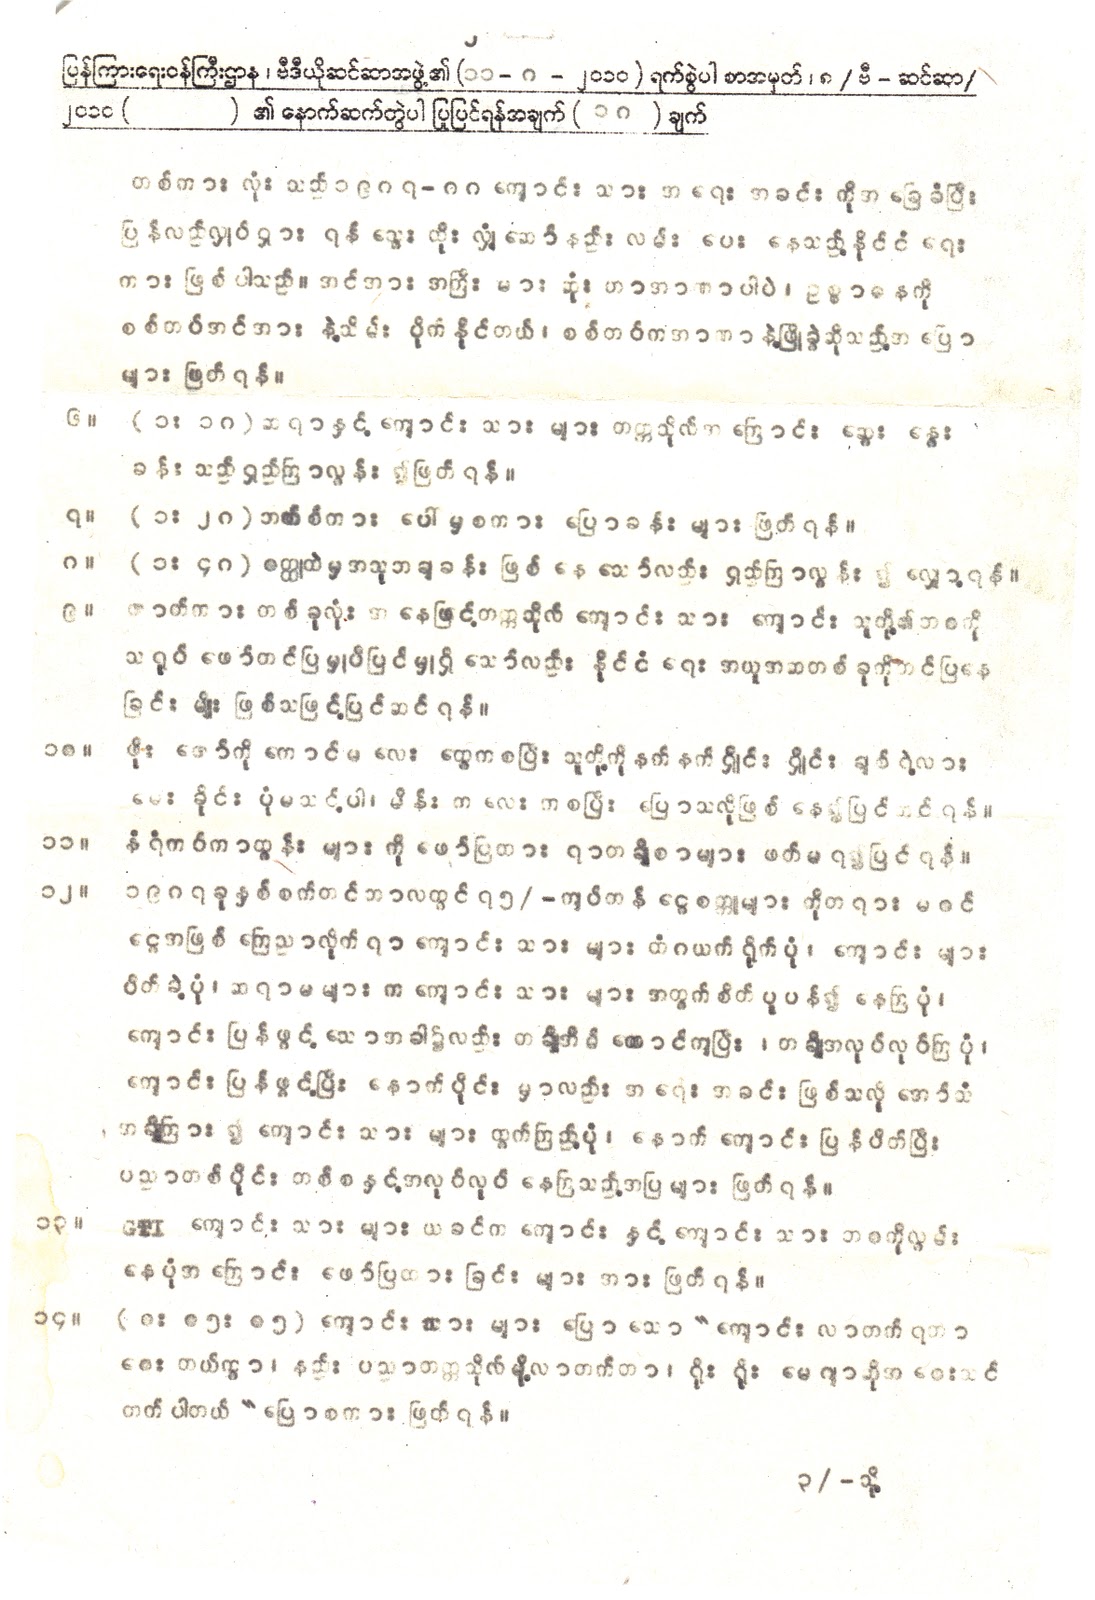 ၂
ပြန်ကြားရေးဝန်ကြီးဌာန ၊ ဗီဒီယိုဆင်ဆာအဖွဲ့၏ (၁၁ - ၈ - ၂၀၁၀) ရက်စွဲပါ စာအမှတ် ၊ ၈ / ဗီ - ဆင်ဆာ/
၂၀၁၀ ( ) ၏ နောက်ဆက်တွဲပါ ပြုပြင်ရန်အချက် ( ၁၈ ) ချက်
တစ်ကားလုံးသည်၁၉၈၇-၈၈ ကျောင်းသားအရေးအခင်းကိုအခြေခံပြီး
ပြန်လည်လှုပ်ရှားရန်သွေးထိုးလှုံ့ဆော်နည်းလမ်းပေးနေသည့်နိုင်ငံရေး
ကားဖြစ်ပါသည်။ အင်အားအကြီးမားဆုံးဟာအာဏာပါပဲ၊ ဥစ္စာဓနကို
စစ်တပ်အင်အားနဲ့သိမ်းပိုက်နိုင်တယ်၊ စစ်တပ်ကအာဏာနဲ့ဖြိုခွဲဆိုသည့်အပြော
များဖြတ်ရန်။
၆။ (၁း ၁၈)ဆရာနှင့်ကျောင်းသားများတက္ကသိုလ်အကြောင်းဆွေးနွေး
ခန်းသည်ရှည်ကြာလွန်း၍ဖြတ်ရန်။
၇။ (၁း ၂၈)ဘတ်စ်ကားပေါ်မှစကားပြောခန်းများဖြတ်ရန်။
၈။ (၁း ၄၈)ဝတ္ထုထဲမှအသုဘချခန်းဖြစ်နေသော်လည်းရှည်ကြာလွန်း၍လျှော့ရန်။
၉။ ဇာတ်ကားတစ်ခုလုံးအနေဖြင့်တက္ကသိုလ်ကျောင်းသားကျောင်းသူတို့၏ဘဝကို
သရုပ်ဖော်တင်ပြမှုပီပြင်မှုရှိသော်လည်းနိုင်ငံရေးအယူအဆတစ်ခုကိုတင်ပြနေ
ခြင်းမျိုးဖြစ်သဖြင့်ပြင်ဆင်ရန်။
၁၀။ ဖိုးဇော်ကိုကောင်မလေးတွေကစပြီးသူတို့ကိုနက်နက်ရှိုင်းရှိုင်းချစ်ရဲ့လား
မေးခိုင်းပုံမသင့်ပါ၊ မိန်းကလေးကစပြီးပြောသလိုဖြစ်နေ၍ပြင်ဆင်ရန်။
၁၁။ နံရံကပ်ကာတွန်းများကိုဖော်ပြထားရာတချို့စာများဖတ်မရ၍ပြင်ရန်။
၁၂။ ၁၉၈၇ခုနှစ်စက်တင်ဘာလတွင်၇၅/-ကျပ်တန်ငွေစက္ကူများကိုတရားမဝင်
ငွေအဖြစ်ကြေညာလိုက်ရာကျောင်းသားများထံဂယက်ရိုက်ပုံ၊ ကျောင်းများ
ပိတ်ခဲ့ပုံ၊ ဆရာမများကကျောင်းသားများအတွက်စိတ်ပူပန်၍နေကြပုံ၊
ကျောင်းပြန်ဖွင့်သောအခါ၌လည်းတချို့အိမ်ထောင်ကျပြီး၊ တချို့အလုပ်လုပ်ကြပုံ၊
ကျောင်းပြန်ဖွင့်ပြီးနောက်ပိုင်းမှာလည်းအရေးအခင်းဖြစ်သလိုအော်သံ
အချို့ကြား၍ကျောင်းသားများထွက်ကြည့်ပုံ၊ နောက်ကျောင်းပြန်ပိတ်ပြီး
ပညာတစ်ပိုင်းတစ်စနှင့်အလုပ်လုပ်နေကြသည့်အပြများဖြတ်ရန်။
၁၃။ GTI ကျောင်းသားများယခင်ကကျောင်းနှင့်ကျောင်းသားဘဝကိုလွမ်း
နေပုံအကြောင်းဖော်ပြထားခြင်းများအားဖြတ်ရန်။
၁၄။ (၀း ၀၅း ၀၅) ကျောင်းသားများပြောသော "ကျောင်းလာတက်ရတာ
ဝေးတယ်ကွာ၊ နည်းပညာတက္ကသိုလ်မို့လာတက်တာ၊ ရိုးရိုးမေဂျာဆိုအဝေးသင်
တက်ပါတယ်" ပြောစကားဖြတ်ရန်။
၃/-သို့